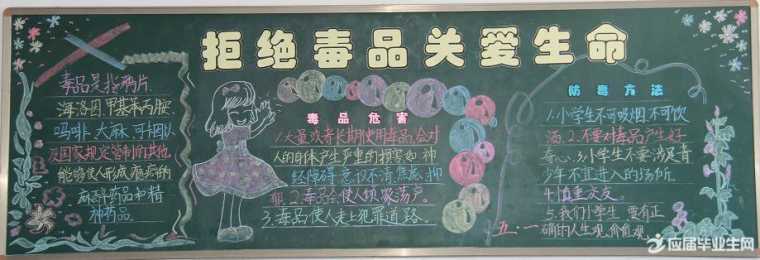 拒绝毒品关爱生命
毒品是指鸦片
海洛因.甲基苯丙胺.
吗啡.大麻.可卡因以
及国家规定管制的其他
能够使人形成瘾癖的
麻醉药品和精
神药品.
毒品危害
1.大量或者长期使用毒品,会对
人的身体产生严重的损害如神
经障碍意识不清焦虑.抑
郁 2.毒品会使人倾家荡产.
3.毒品使人走上犯罪道路.
防毒方法
1.小学生不可吸烟不可饮
酒.2.不要对毒品产生好
奇心.3.小学生不要涉足青
少年不宜进入的场所.
4.慎重交友.
5.我们小学生 要有正
确的人生观.价值观.
五.一
应届毕业生网